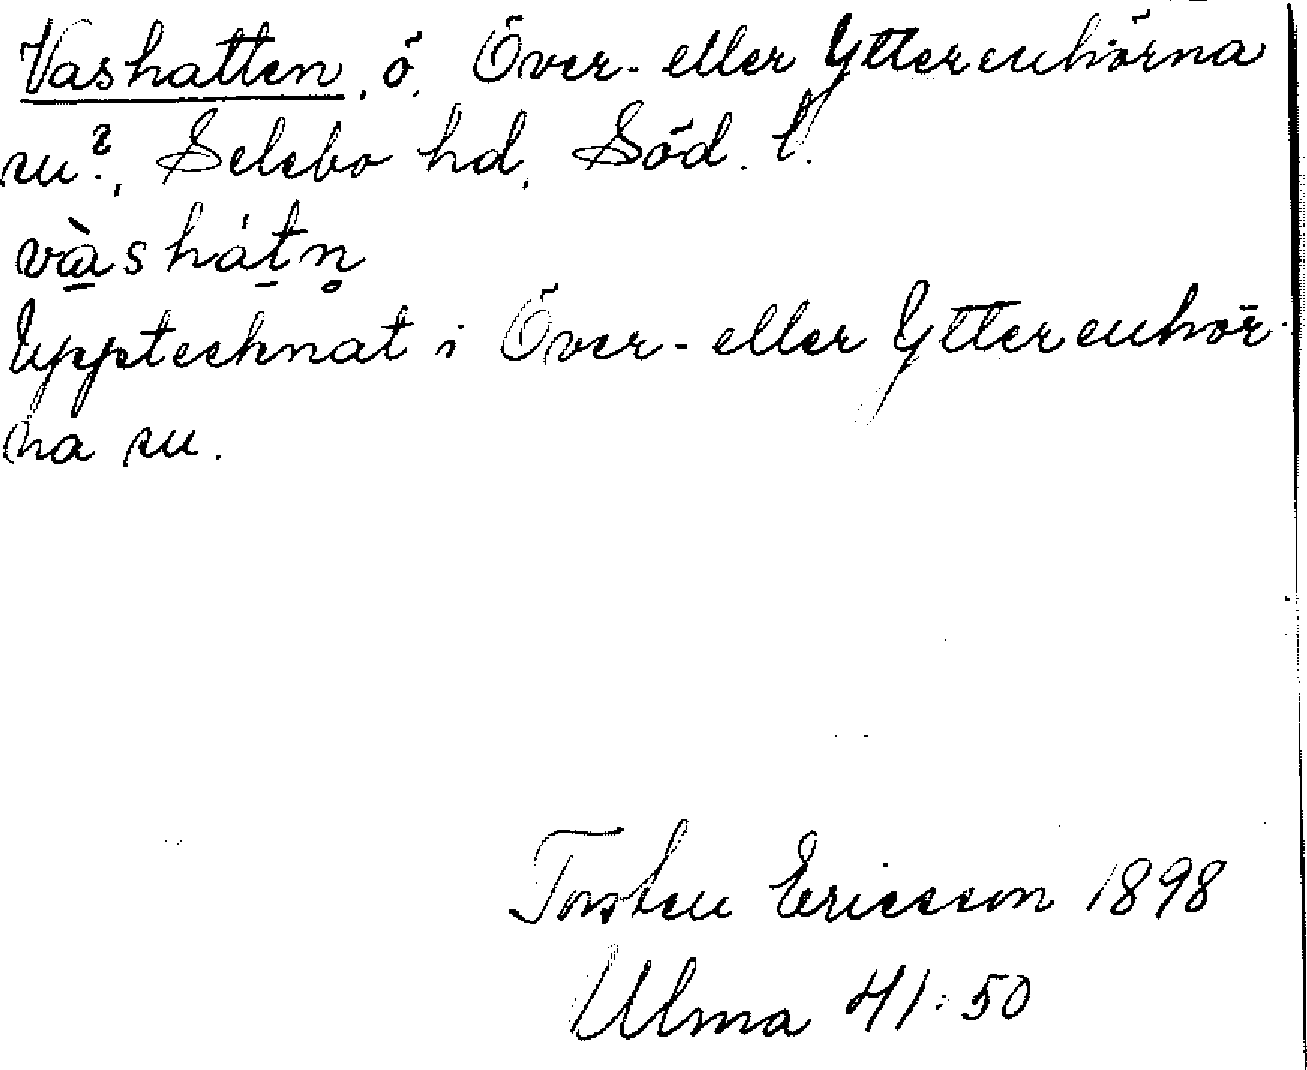 Vashatten, ö, Över- eller Ytterenhörna
sn?, Selebo hd, Söd. l.
vàshátn̥
Upptecknat i Över- eller Ytterenhör-
na sn.
Torsten Ericsson 1898
Ulma 41:50